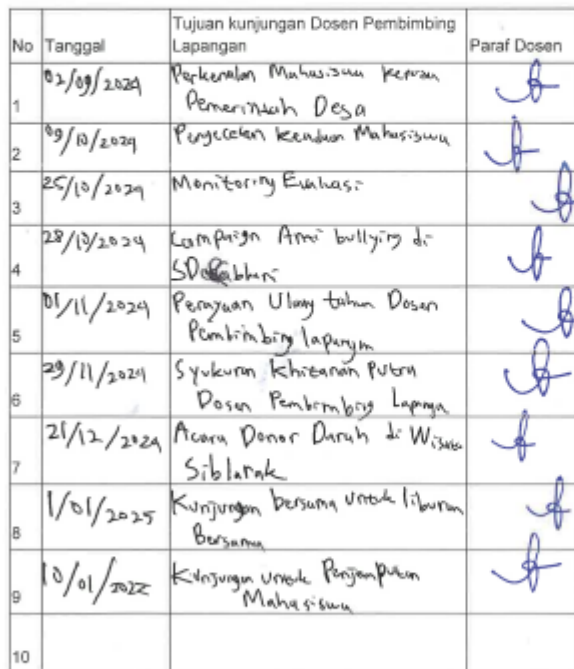 No Tanggal Tujuan kunjungan Dosen Pembimbing Lapangan Paraf Dosen
1 02/09/2024 Perkenalan Mahasiswa
Pemerintah Desa
2 09/10/2024 Pengecekan keadaan Mahasiswa
3 25/10/2024 Monitoring Evaluasi
4 28/10/2024 Campaign Anti bullying di
SD
5 01/11/2024 Perayaan Ulang tahun Dosen
Pembimbing lapangan
6 29/11/2024 Syukuran Khitanan Putra
Dosen Pembimbing Lapangan
7 21/12/2024 Acara Donor Darah di Wisata
Siblarak
8 1/01/2025 Kunjungan bersama untuk liburan
Bersama
9 10/01/ Kunjungan untuk Penjemputan
Mahasiswa
10